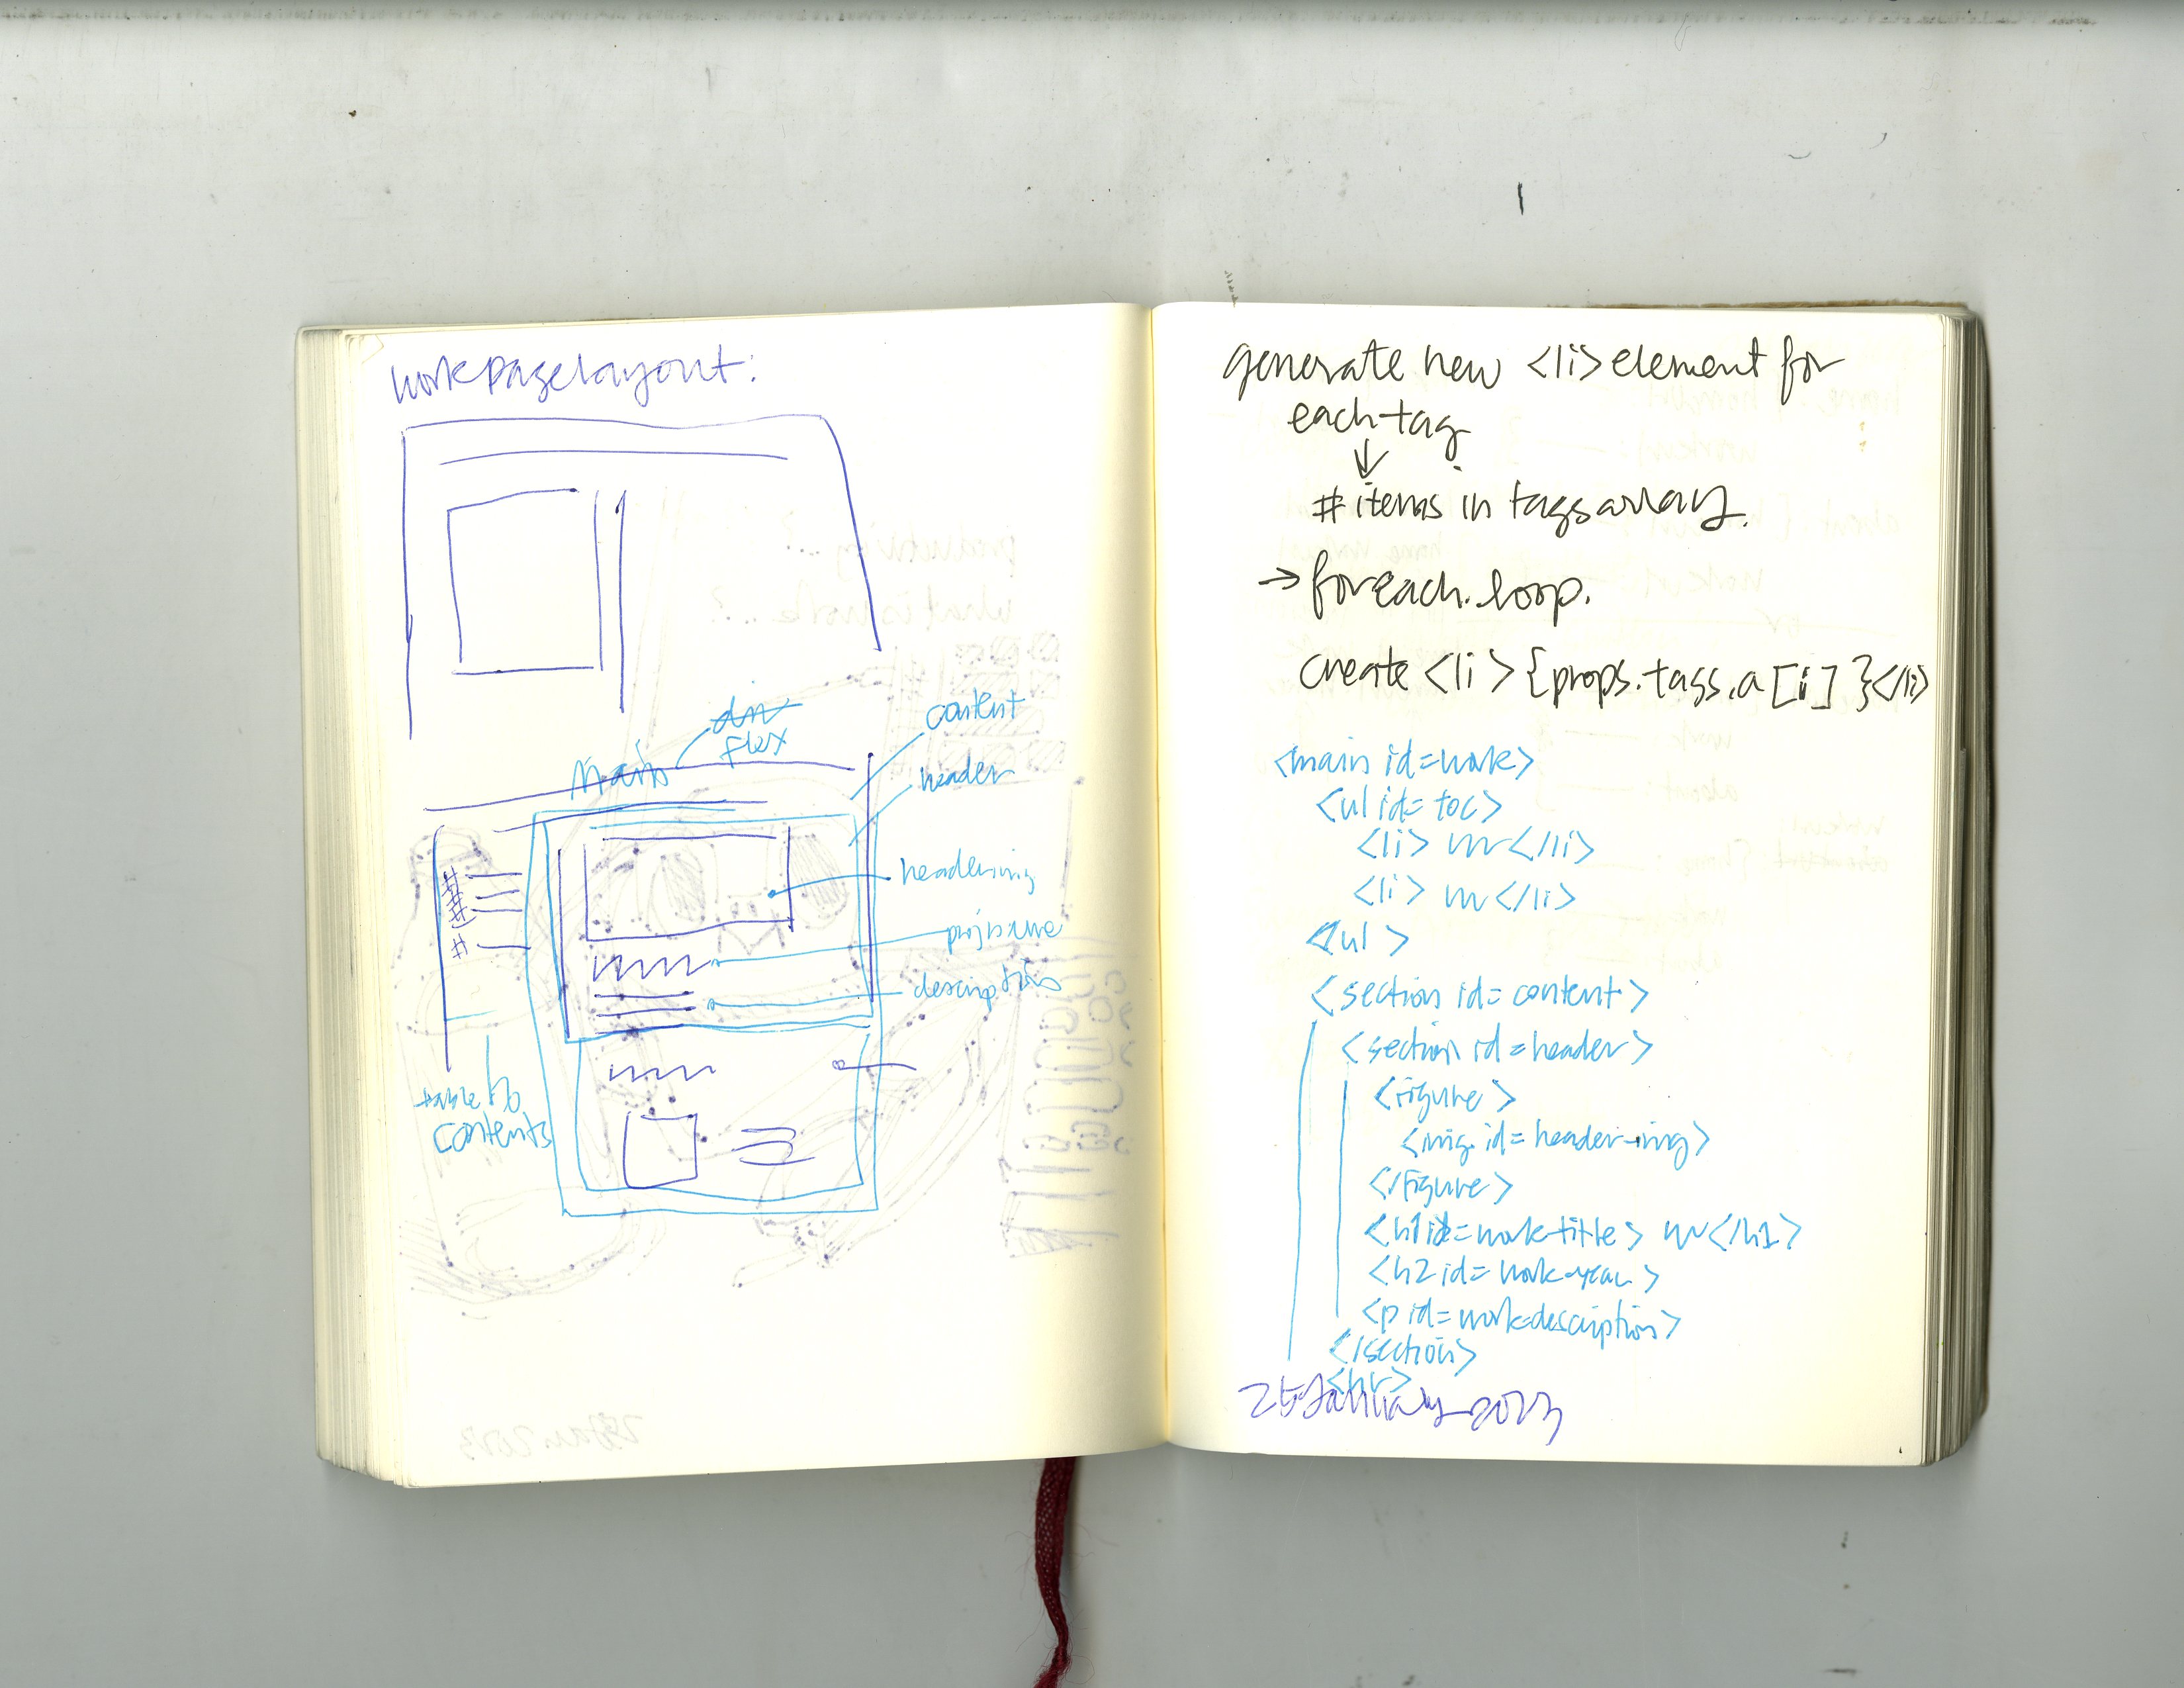 work page layout:
div
flex
Main
content
header
header img
proj name
description
table to
contents
generate new <li> element for
each tag
↓
# items in tags array.
→ foreach loop.
create <li> {props.tags.a[i] }</li>
<main id=work>
<ul id= toc>
<li> </li>
<li> </li>
<ul >
<section id= content>
<section id=header>
<figure >
<img id= header-img>
</figure>
<h1 id=work-title> </h1>
<h2 id= work-year>
<p id= work-description>
</section>
<hr>
25 January 2023